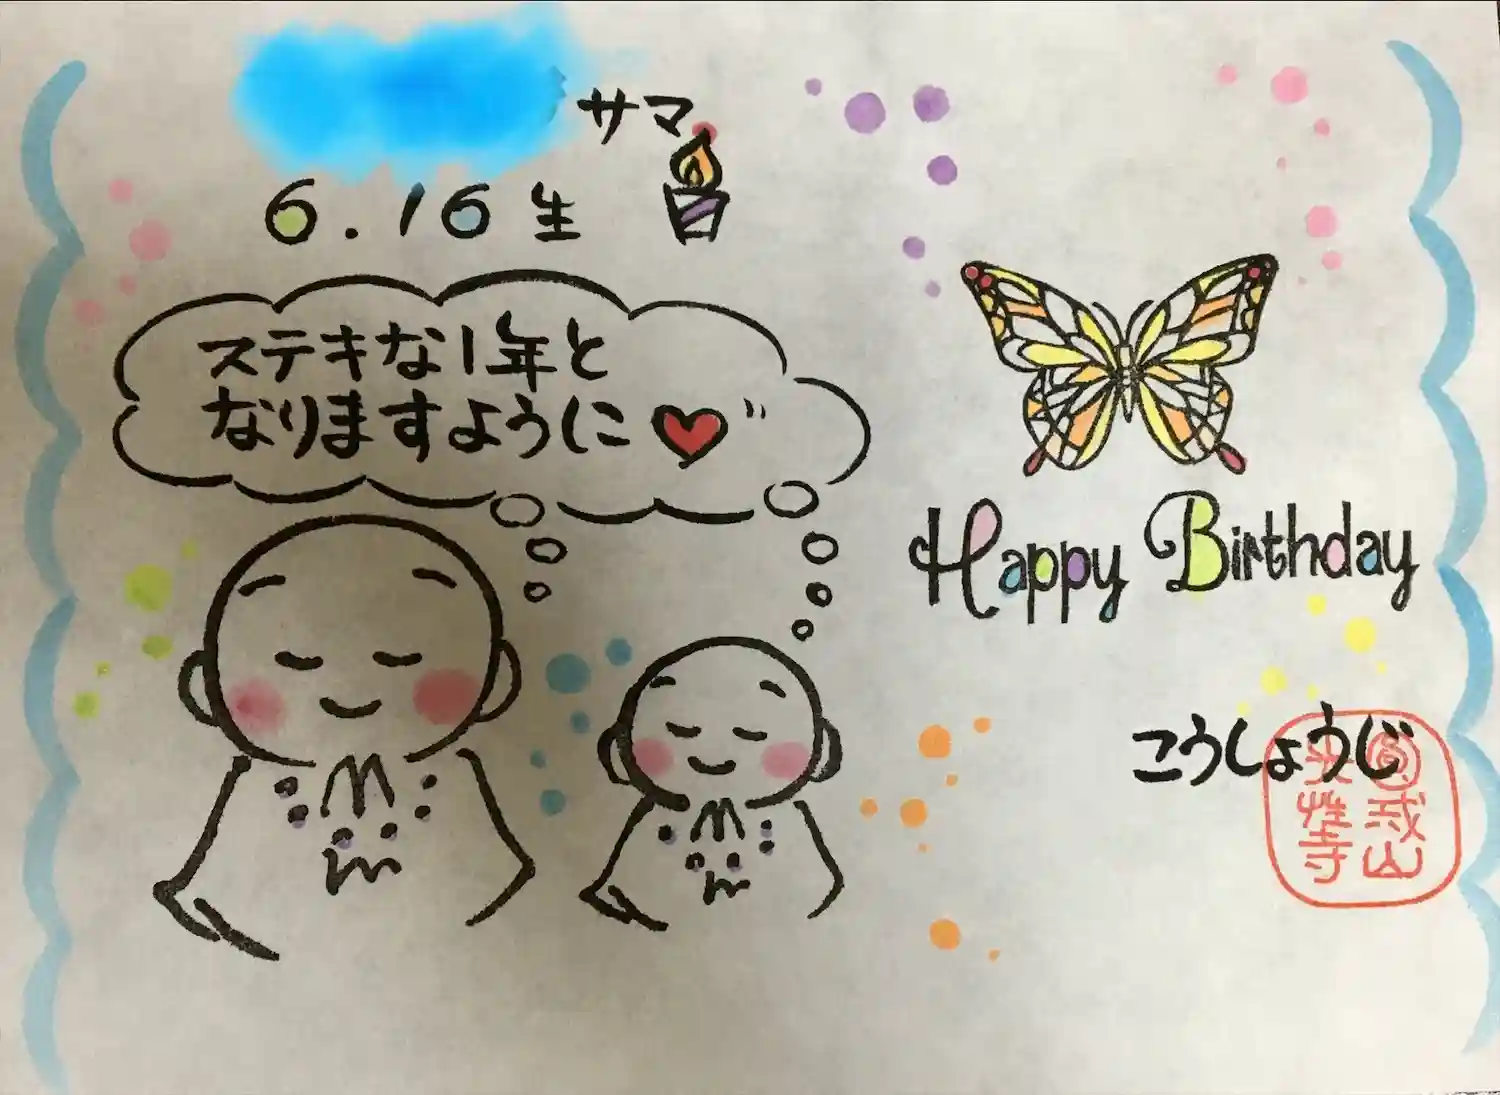 サマ
6.16 生
ステキな1年と
なりますように
Happy Birthday
こうしょうじ